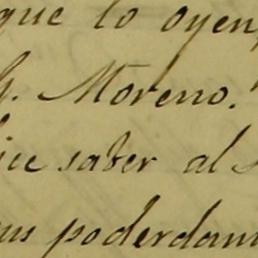 que lo oyen,
G. Moreno.
ice saber al S
us poderdan